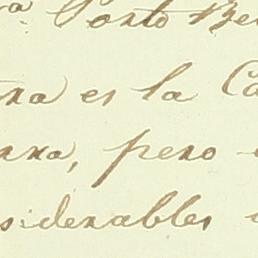 a Porto Be
na es la Ca
rra, pero
siderables